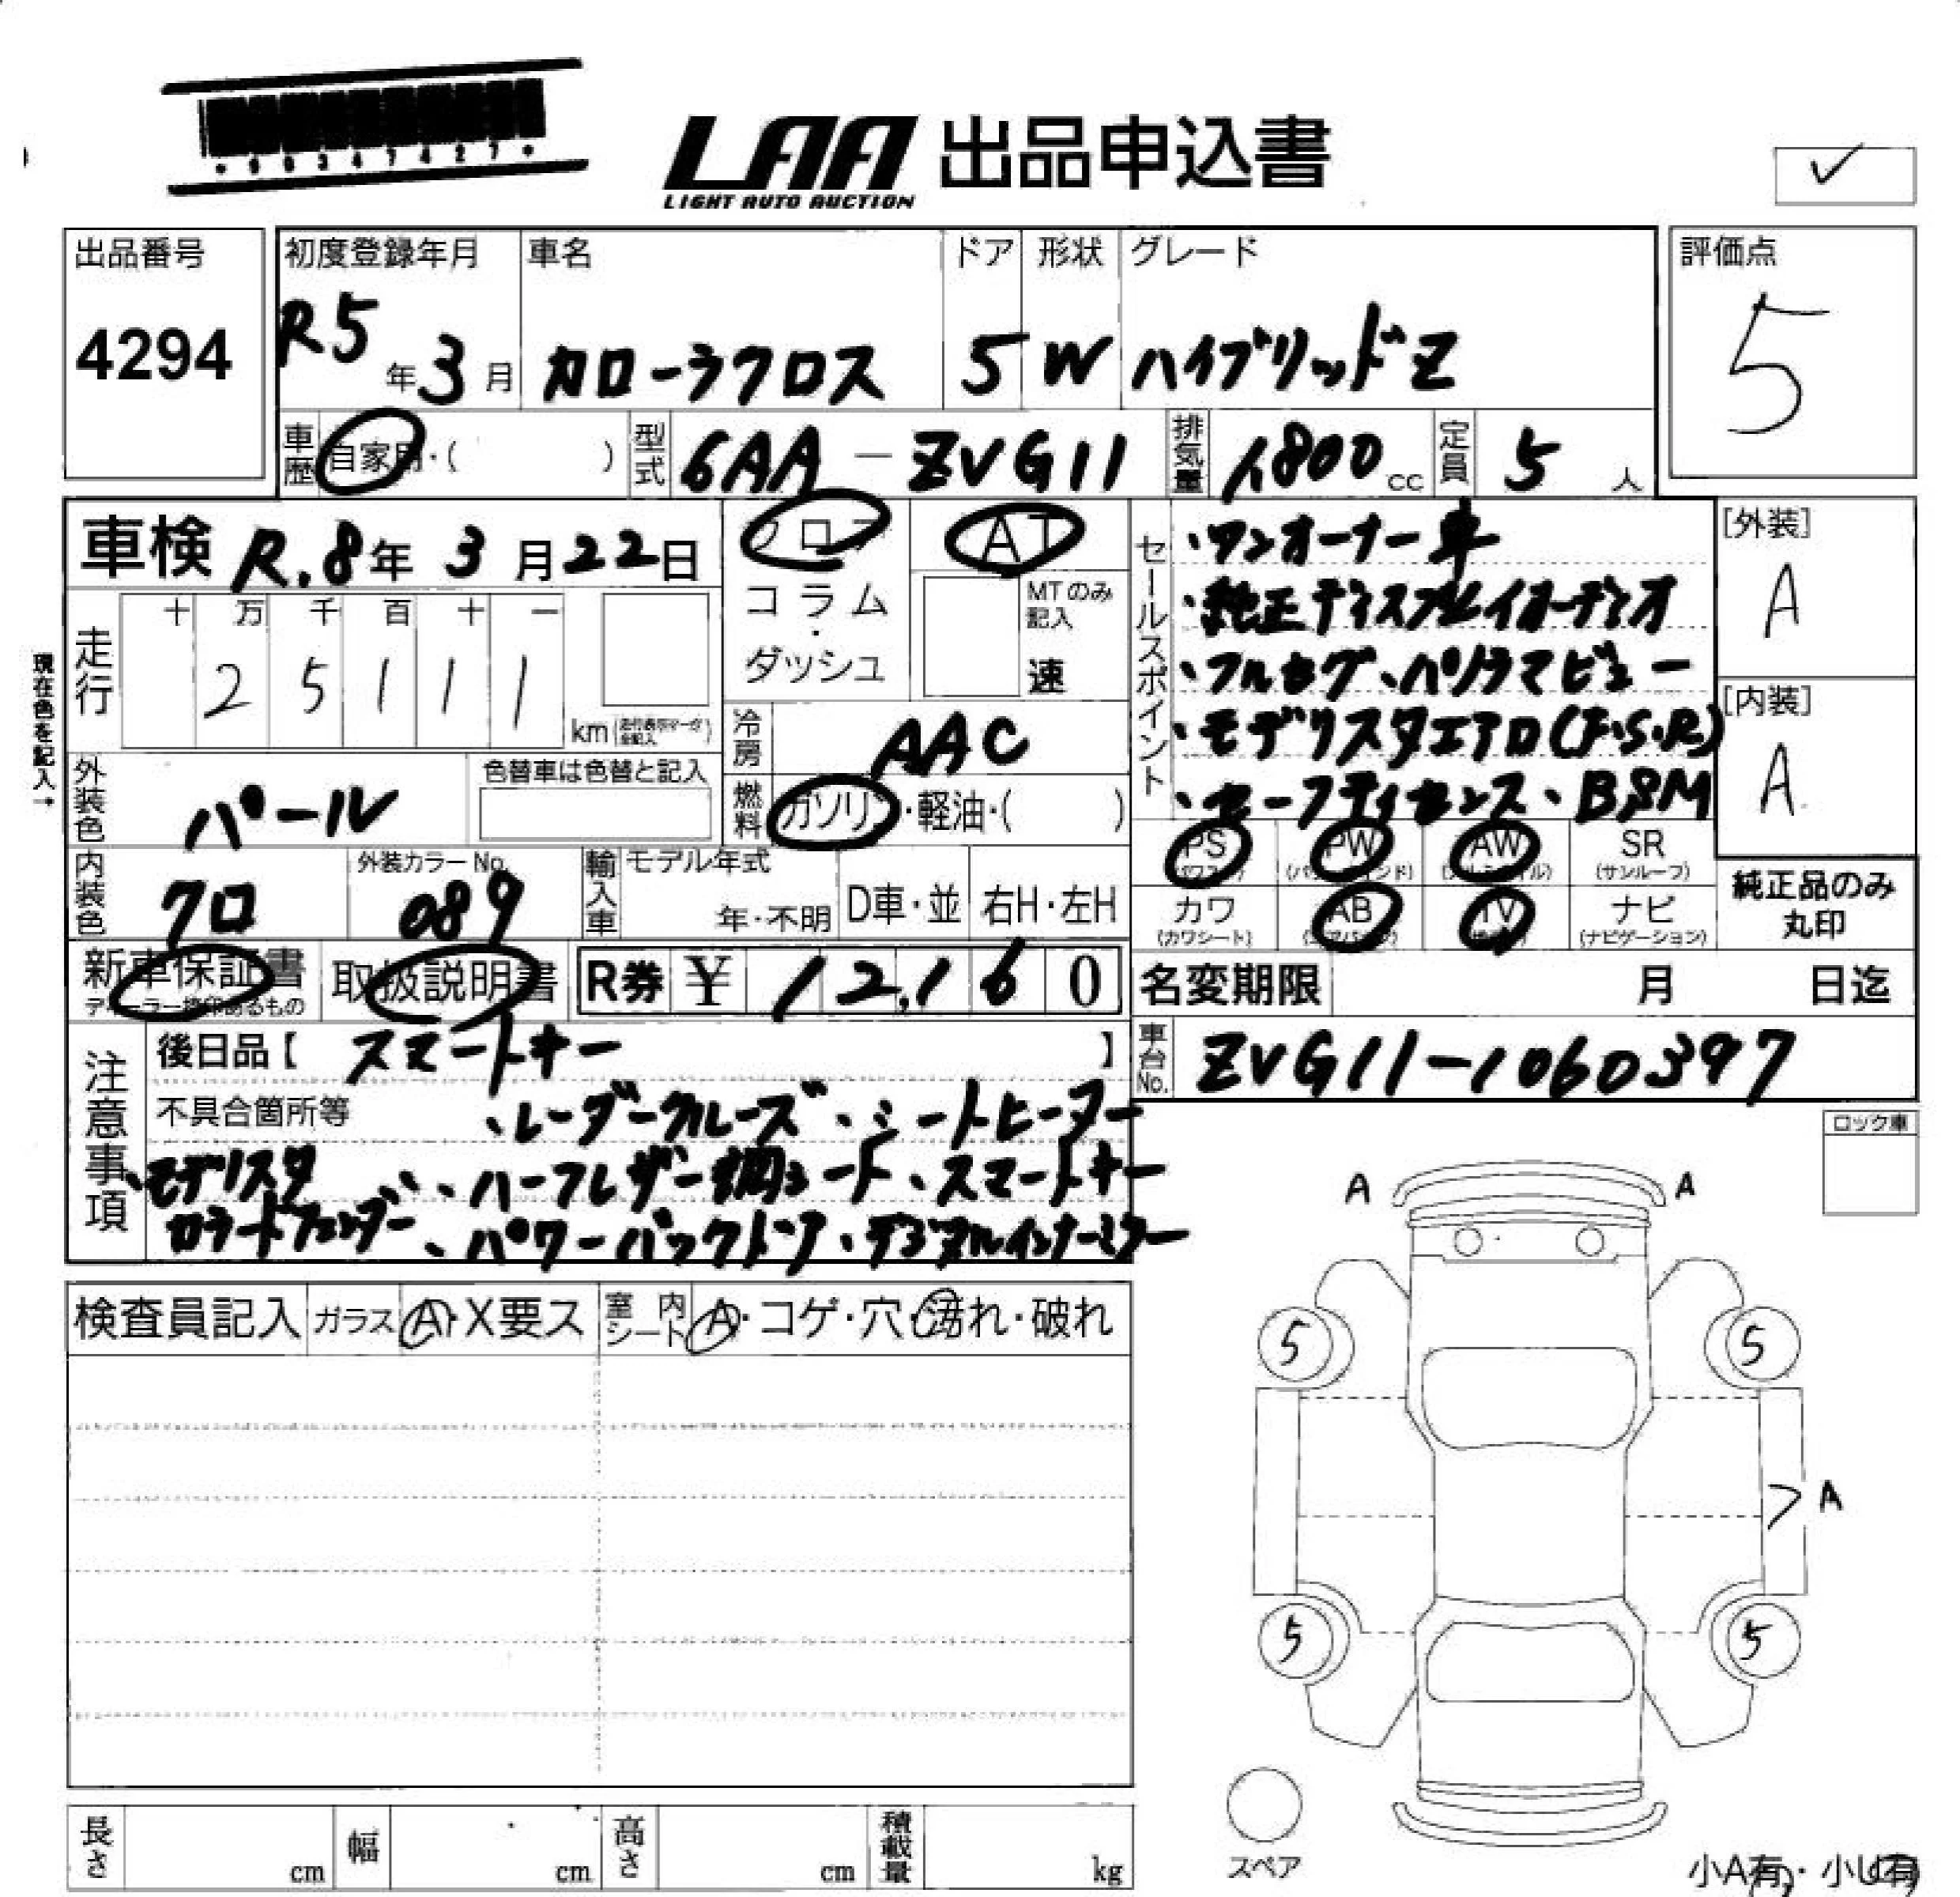 LAA 出品申込書
LIGHT AUTO AUCTION
出品番号
4294
初度登録年月
R5年3月
車名
カローラクロス
ドア
5
形状
W
グレード
ハイブリッドZ
評価点
5
車歴 自家用・( )
型式 6AA-ZVG11
排気量 1800cc
定員 5人
車検 R.8年3月22日
フロア
コラム
・
ダッシュ
AT
MTのみ記入
速
セールスポイント
・ワンオーナー車
・純正ディスプレイオーディオ
・フルセグ、パノラマビュー
・モデリスタエアロ(F.S.R)
・セーフティセンス、BSM
[外装]
A
[内装]
A
現在色を記入→
走行
十 万 千 百 十 一
2 5 1 1 1
km
冷房 AAC
外装色 パール
色替車は色替と記入
燃料 ガソリン・軽油・( )
PS
PW
AW
SR
(サンルーフ)
内装色 クロ
外装カラーNo.
089
輸入車
モデル年式
年・不明
D車・並
右H・左H
カワ
(カワシート)
AB
TV
ナビ
(ナビゲーション)
純正品のみ
丸印
新車保証書
取扱説明書
R券 ¥ 12,160
名変期限 月 日迄
車台No. ZVG11-1060397
注意事項
後日品【 スマートキー 】
不具合箇所等
、レーダークルーズ、シートヒーター
、モデリスタ 、ハーフレザー調シート、スマートキー
カラードフェンダー、パワーバックドア、デジタルインナーミラー
ロック車
A A
検査員記入 ガラス A・X要ス 室内シート A・コゲ・穴・汚れ・破れ
5 5
A
5 5
スペア
長さ cm
幅 cm
高さ cm
積載量 kg
小A有・小U有